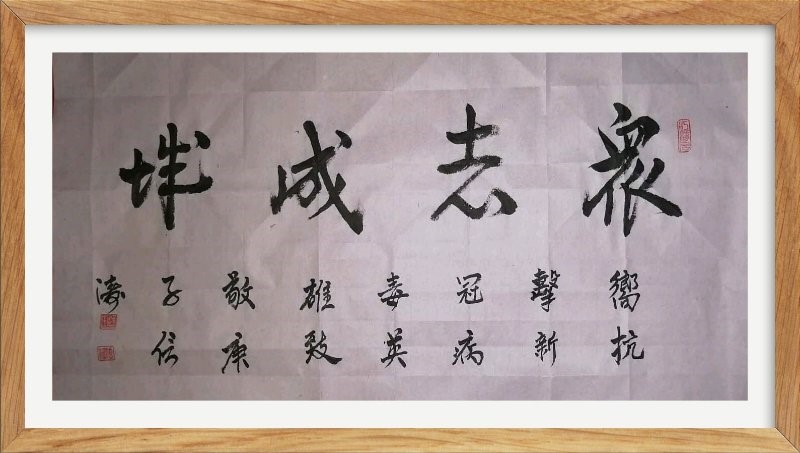 衆志成城
嚮抗
擊新
冠病
毒英
雄致
敬庚
子信
濤